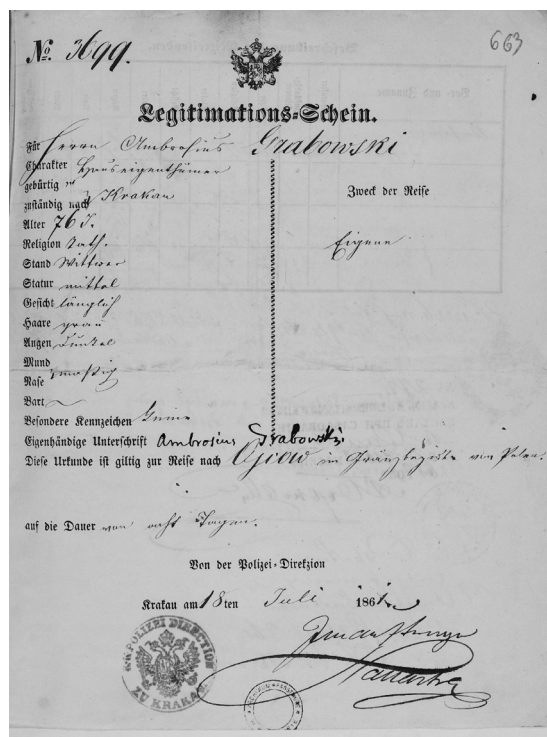 No. 3699.
663
Legitimations-Schein.
Für Herrn Ambrosius Grabowski
Charakter Hauseigenthümer
gebürtig in
zuständig nach Krakau
Alter 76 J.
Religion kath.
Stand Wittwer
Statur mittel
Gesicht länglich
Haare grau
Augen dunkel
Mund
Nase mäßig
Bart
Besondere Kennzeichen keine
Zweck der Reise
Eigene
Eigenhändige Unterschrift Ambrosius Grabowski.
Diese Urkunde ist giltig zur Reise nach Ojców in von Polen.
auf die Dauer von acht Tagen.
Von der Polizei-Direkzion
Krakau am 18ten Juli 186
K.K. POLIZEI DIRECTION
ZU KRAKAU